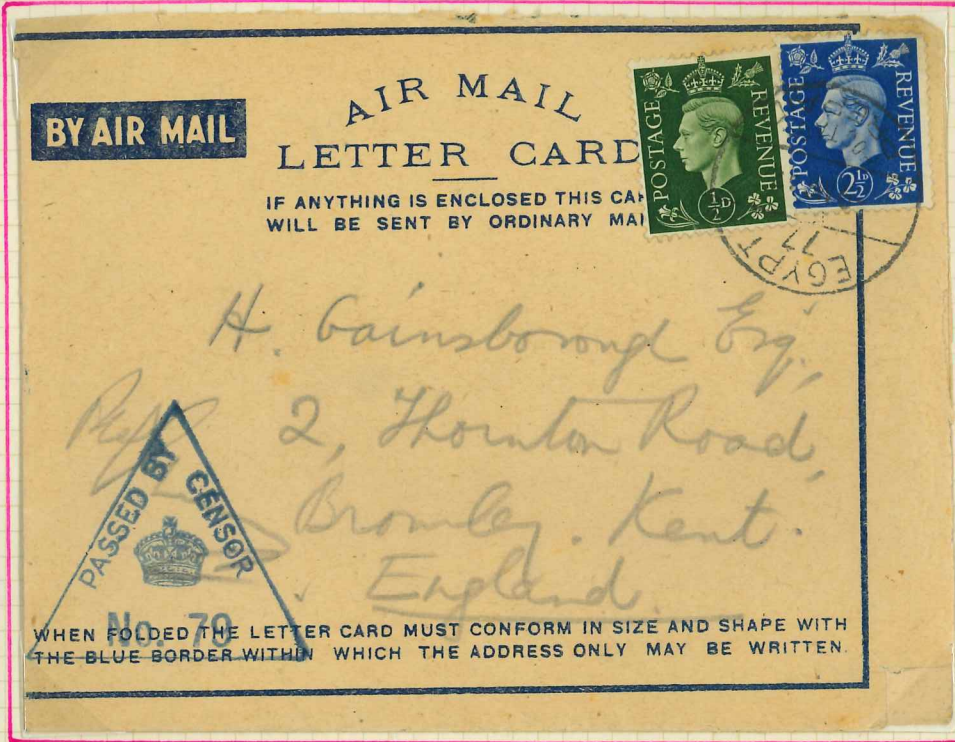 AIR MAIL
BY AIR MAIL
LETTER CARD
IF ANYTHING IS ENCLOSED THIS CA
WILL BE SENT BY ORDINARY MAI
POSTAGE REVENUE
½D
POSTAGE REVENUE
2½D
EGYPT
77
H. Gainsborough Esq.,
2, Thornton Road,
Bromley. Kent.
England.
PASSED BY CENSOR
No. 79
WHEN FOLDED THE LETTER CARD MUST CONFORM IN SIZE AND SHAPE WITH
THE BLUE BORDER WITHIN WHICH THE ADDRESS ONLY MAY BE WRITTEN.